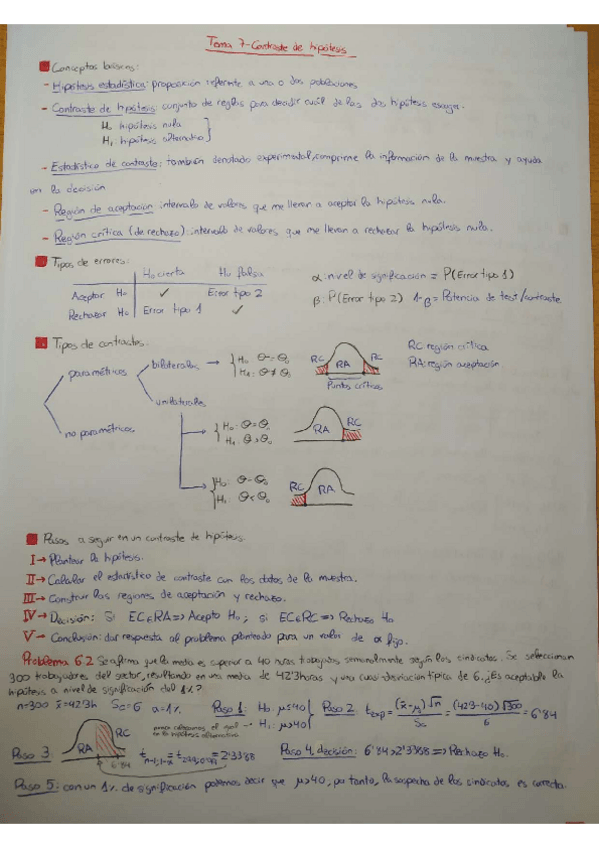 Tema 7 - Contraste de hipótesis
Conceptos básicos:
- Hipótesis estadística: proposición referente a una o dos poblaciones
- Contraste de hipótesis: conjunto de reglas para decidir cuál de las dos hipótesis escoger.
H₀ hipótesis nula
H₁ hipótesis alternativa
- Estadístico de contraste: también denotado experimental, comprime la información de la muestra y ayuda
en la decisión
- Región de aceptación: intervalo de valores que me llevan a aceptar la hipótesis nula.
- Región crítica (de rechazo): intervalo de valores que me llevan a rechazar la hipótesis nula.
Tipos de errores:
H₀ cierta H₀ Falsa
Aceptar H₀ ✓ Error tipo 2
Rechazar H₀ Error tipo 1 ✓
α: nivel de significación = P(Error tipo 1)
β: P(Error tipo 2) 1-β = Potencia de test/contraste
Tipos de contrastes:
paramétricos
bilaterales → H₀: θ=θ₀
H₁: θ≠θ₀
RC RA RC
Puntos críticos
RC: región crítica
RA: región aceptación
unilaterales
no paramétricos
H₀: θ=θ₀
H₁: θ>θ₀
RA RC
H₀: θ=θ₀
H₁: θ<θ₀
RC RA
Pasos a seguir en un contraste de hipótesis.
I → Plantear la hipótesis.
II → Calcular el estadístico de contraste con los datos de la muestra.
III → Construir las regiones de aceptación y rechazo.
IV → Decisión: Si EC∈RA => Acepto H₀; si EC∈RC => Rechazo H₀
V → Conclusión: dar respuesta al problema planteado para un valor de α fijo.
Problema 6.2 Se afirma que la media es superior a 40 horas trabajadas semanalmente según los sindicatos. Se seleccionan
300 trabajadores del sector, resultando en una media de 42'3 horas y una cuasidesviación típica de 6. ¿Es aceptable la
hipótesis a nivel de significación del 1%?
n=300 x̄=42'3h Sc=6 α=1%
Paso 1: H₀: μ≤40
H₁: μ>40
en la hipótesis alternativa
Paso 2: t exp = (x̄-μ)√n / Sc = (42'3-40)√300 / 6 = 6'84
Paso 3:
RA RC 6'84
Paso 4, decisión: 6'84>2'3388 => Rechazo H₀
Paso 5: con un 1% de significación podemos decir que μ>40, por tanto, la sospecha de los sindicatos es correcta.